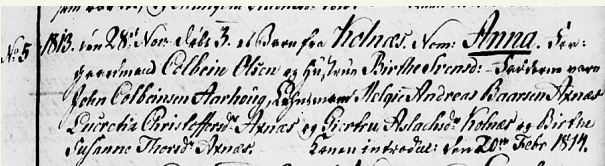 No 5 1813. den 28de Nov. døbt 3. et Barn fra Kolnæs. Nom: Anna. For-
Colbein Olsen og Hustrue Birthe Svensd: Fadderne vare
John Colbeinsen Aarhoug, Lehnsmand Andreas Baarsen Axnæs
Lucretia Christophersd: Axnæs og Aslachsd: Kolnæs og Birthe
Susanne Thorsd: Axnæs. Konen introduc: den 20de Febr 1814.